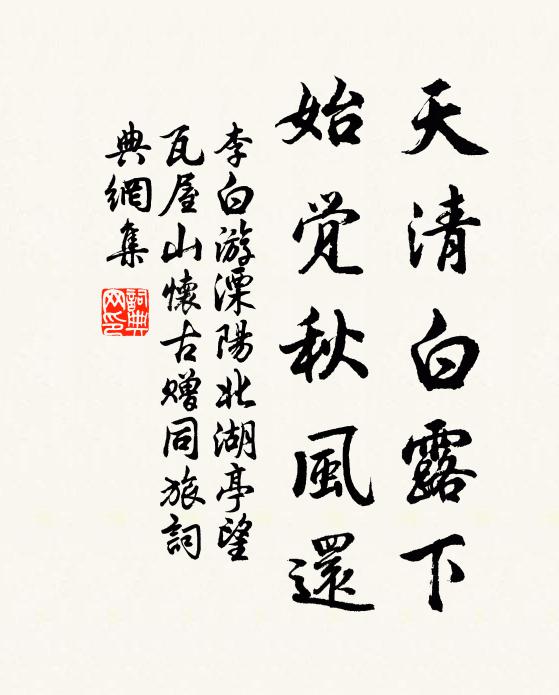 天清白露下
始覺秋風還
李白游溧陽北湖亭望
瓦屋山懷古赠同旅詞
典網集
詞典
网印